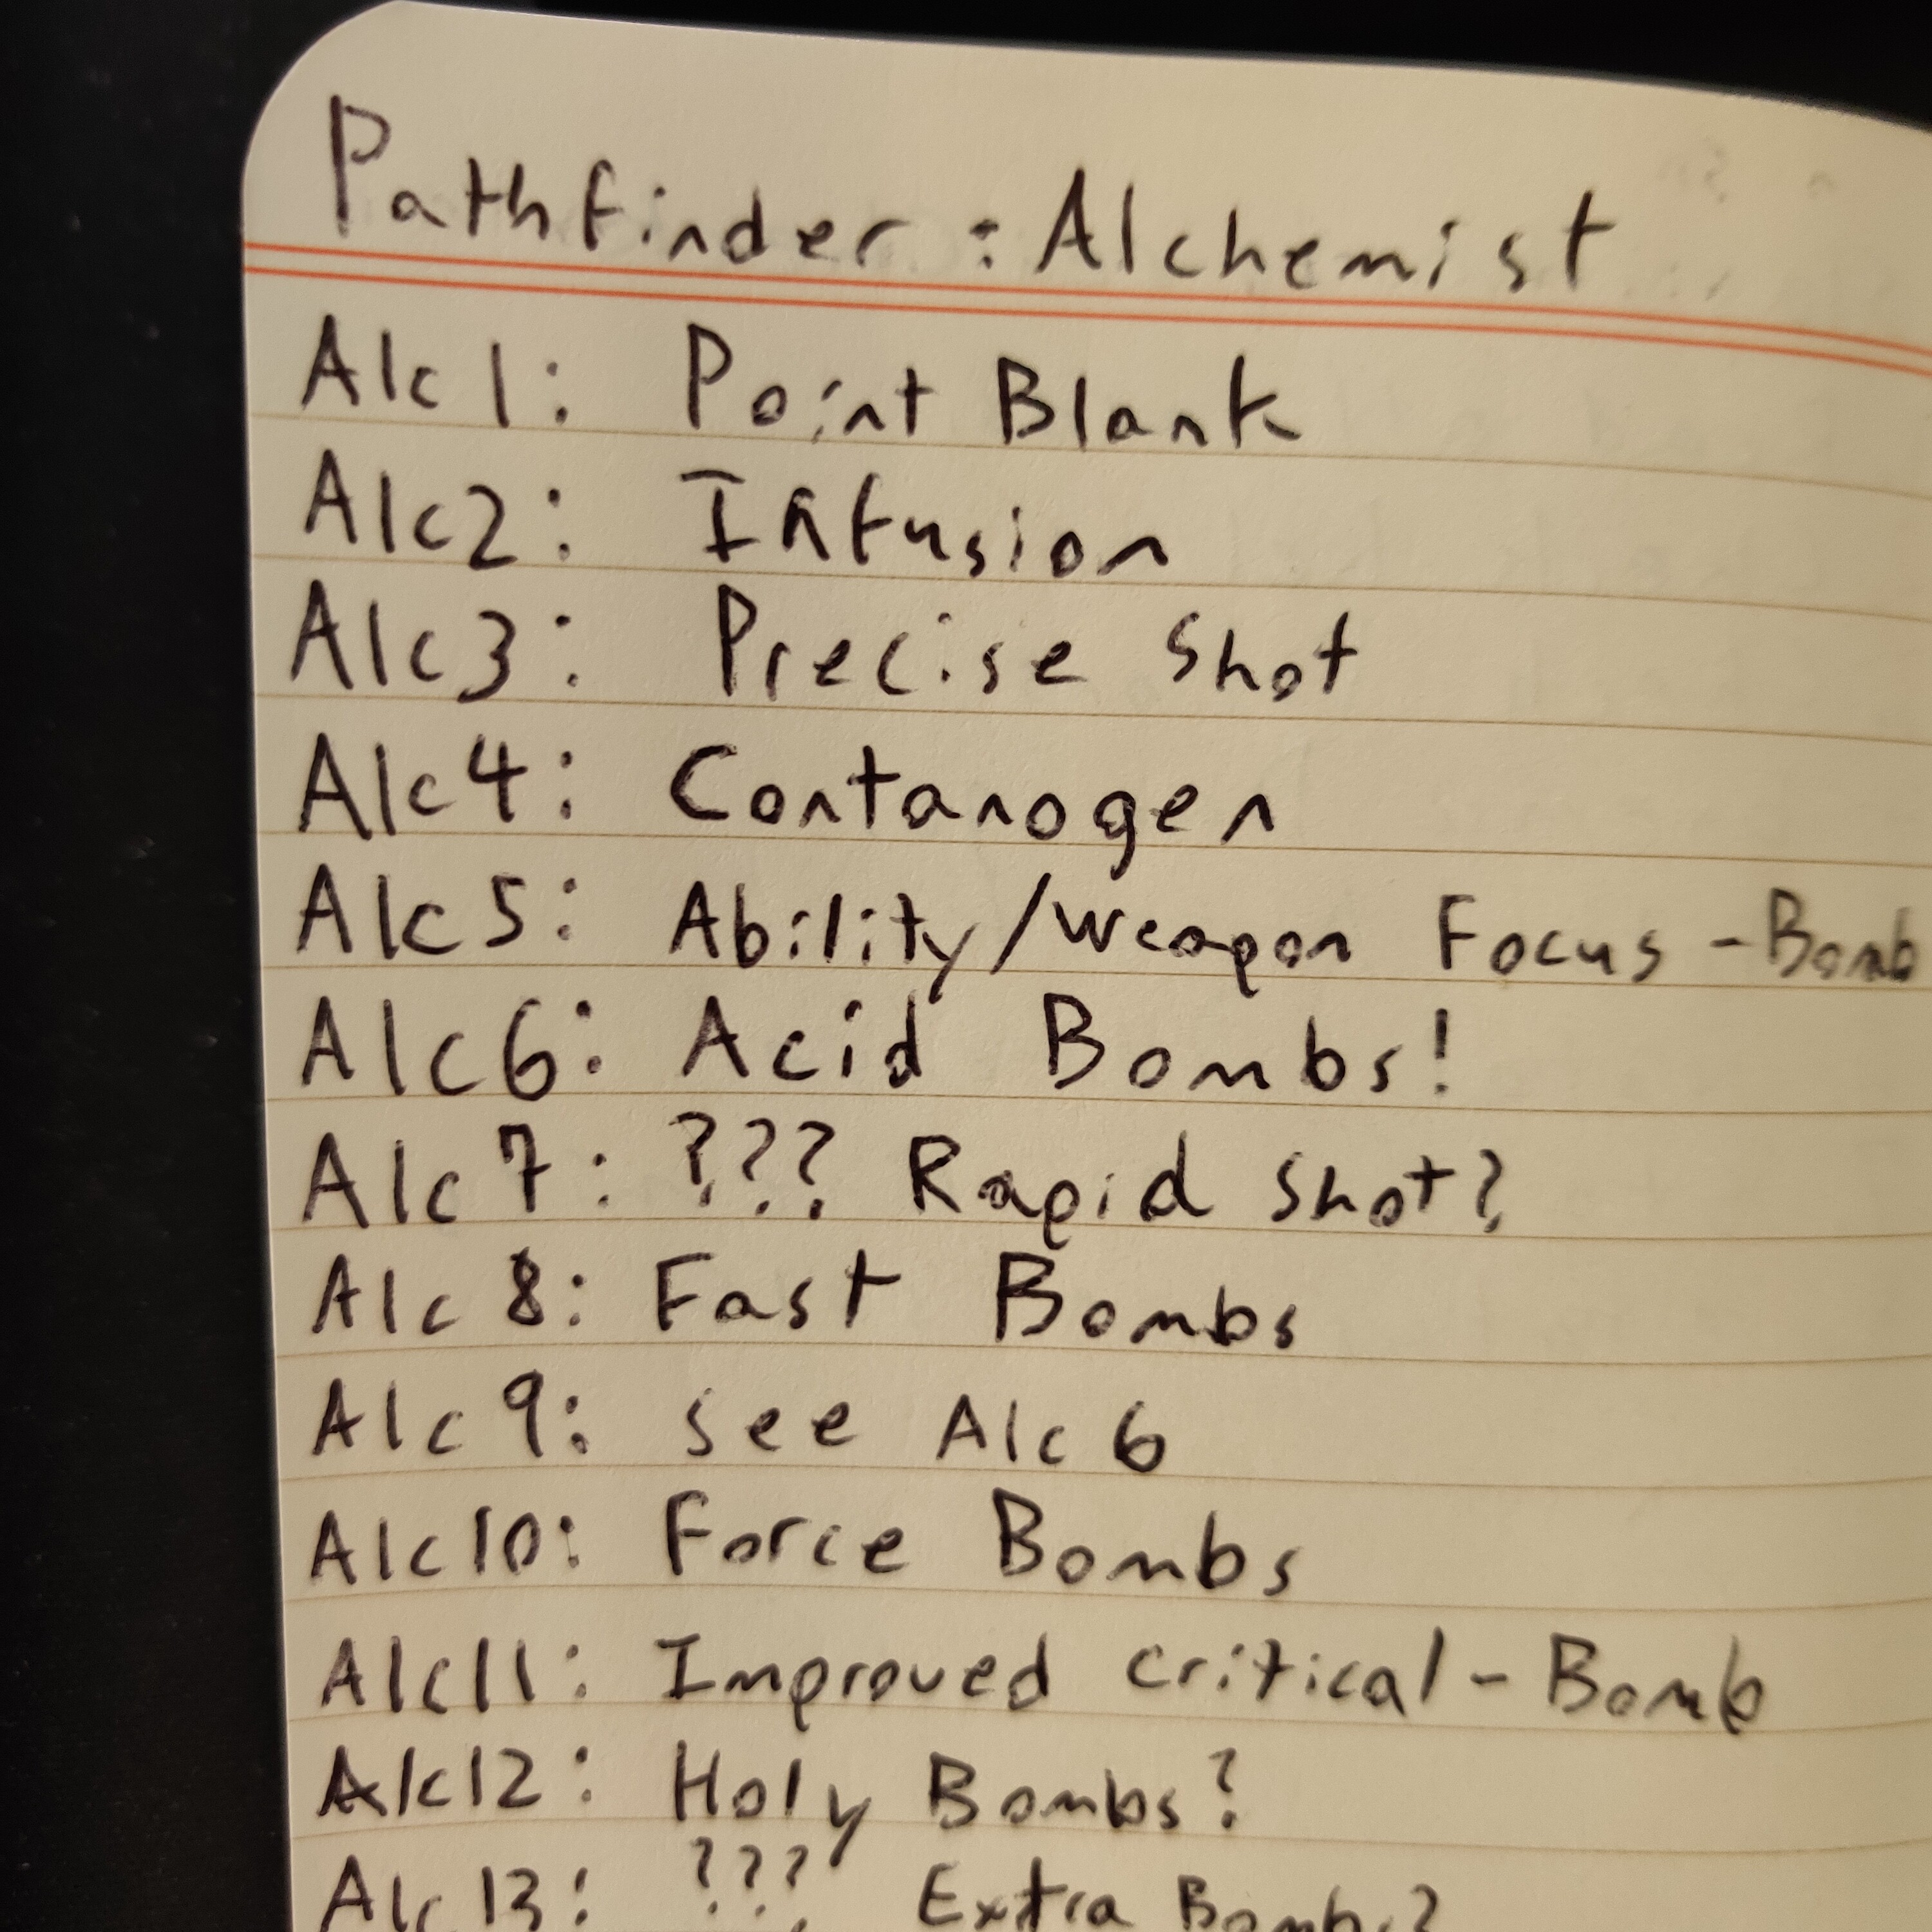 Pathfinder: Alchemist
Alc 1: Point Blank
Alc2: Infusion
Alc3: Precise Shot
Alc4: Contanogen
Alc5: Ability/Weapon Focus - Bomb
Alc6: Acid Bombs!
Alc 7: ??? Rapid Shot?
Alc 8: Fast Bombs
Alc 9: See Alc 6
Alc10: Force Bombs
Alc11: Improved Critical - Bomb
Alc12: Holy Bombs?
Alc 13: ??? Extra Bombs?